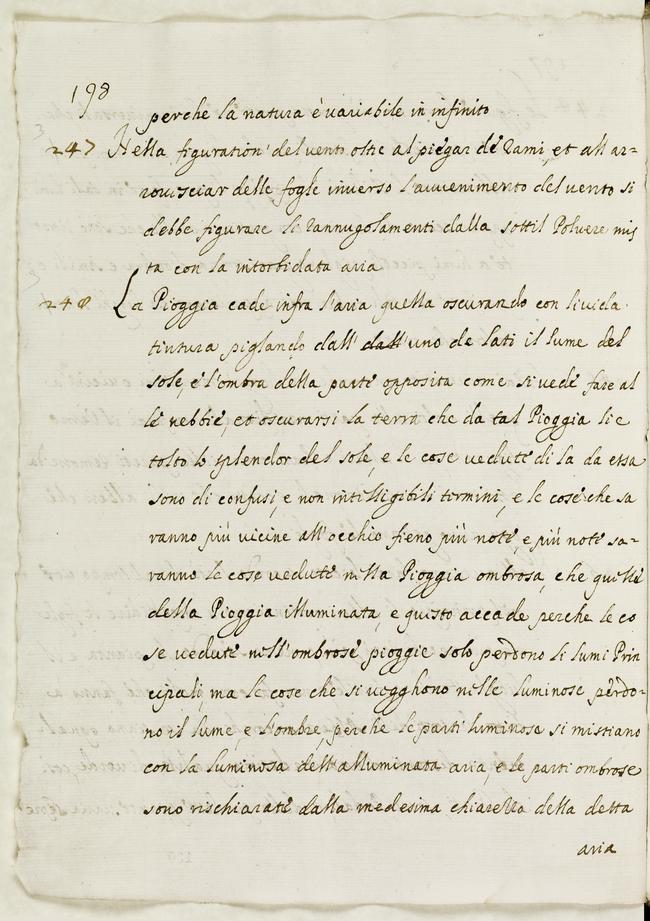 198
perche la natura è variabile in infinito
247 Nella figuration' del vento oltre al piegar de Rami, et all ar-
rovisciar delle foglie inverso l'avvenimento del vento si
debbe figurare li Rannugolamenti dalla sottil Polvere mis
ta con la intorbidata aria
248 La Pioggia cade infra l'aria quella oscurando con livida
tintura piglando dall' dall' uno de lati il lume del
sole, e l'ombra della parte opposita come si vede fare al
le nebbie, et oscurarsi la terra che da tal Pioggia li e
tolto lo splendor del sole, e le cose vedute di la da essa
sono di confusi, e non intelligibili termini, e le cose che sa
ranno più vicine all'occhio fieno più note, e più note sa-
ranno le cose vedute nella Pioggia ombrosa, che quelle
della Pioggia illuminata, e questo accade perche le co
se vedute nell'ombrose pioggie solo perdono li lumi Prin
cipali, ma le cose che si vegghono nelle luminose perdo-
no il lume, e l'ombre, perche le parti luminose si mistiano
con la luminosa dell'alluminata aria, e le parti ombrose
sono rischiarate dalla medesima chiarezza della detta
aria